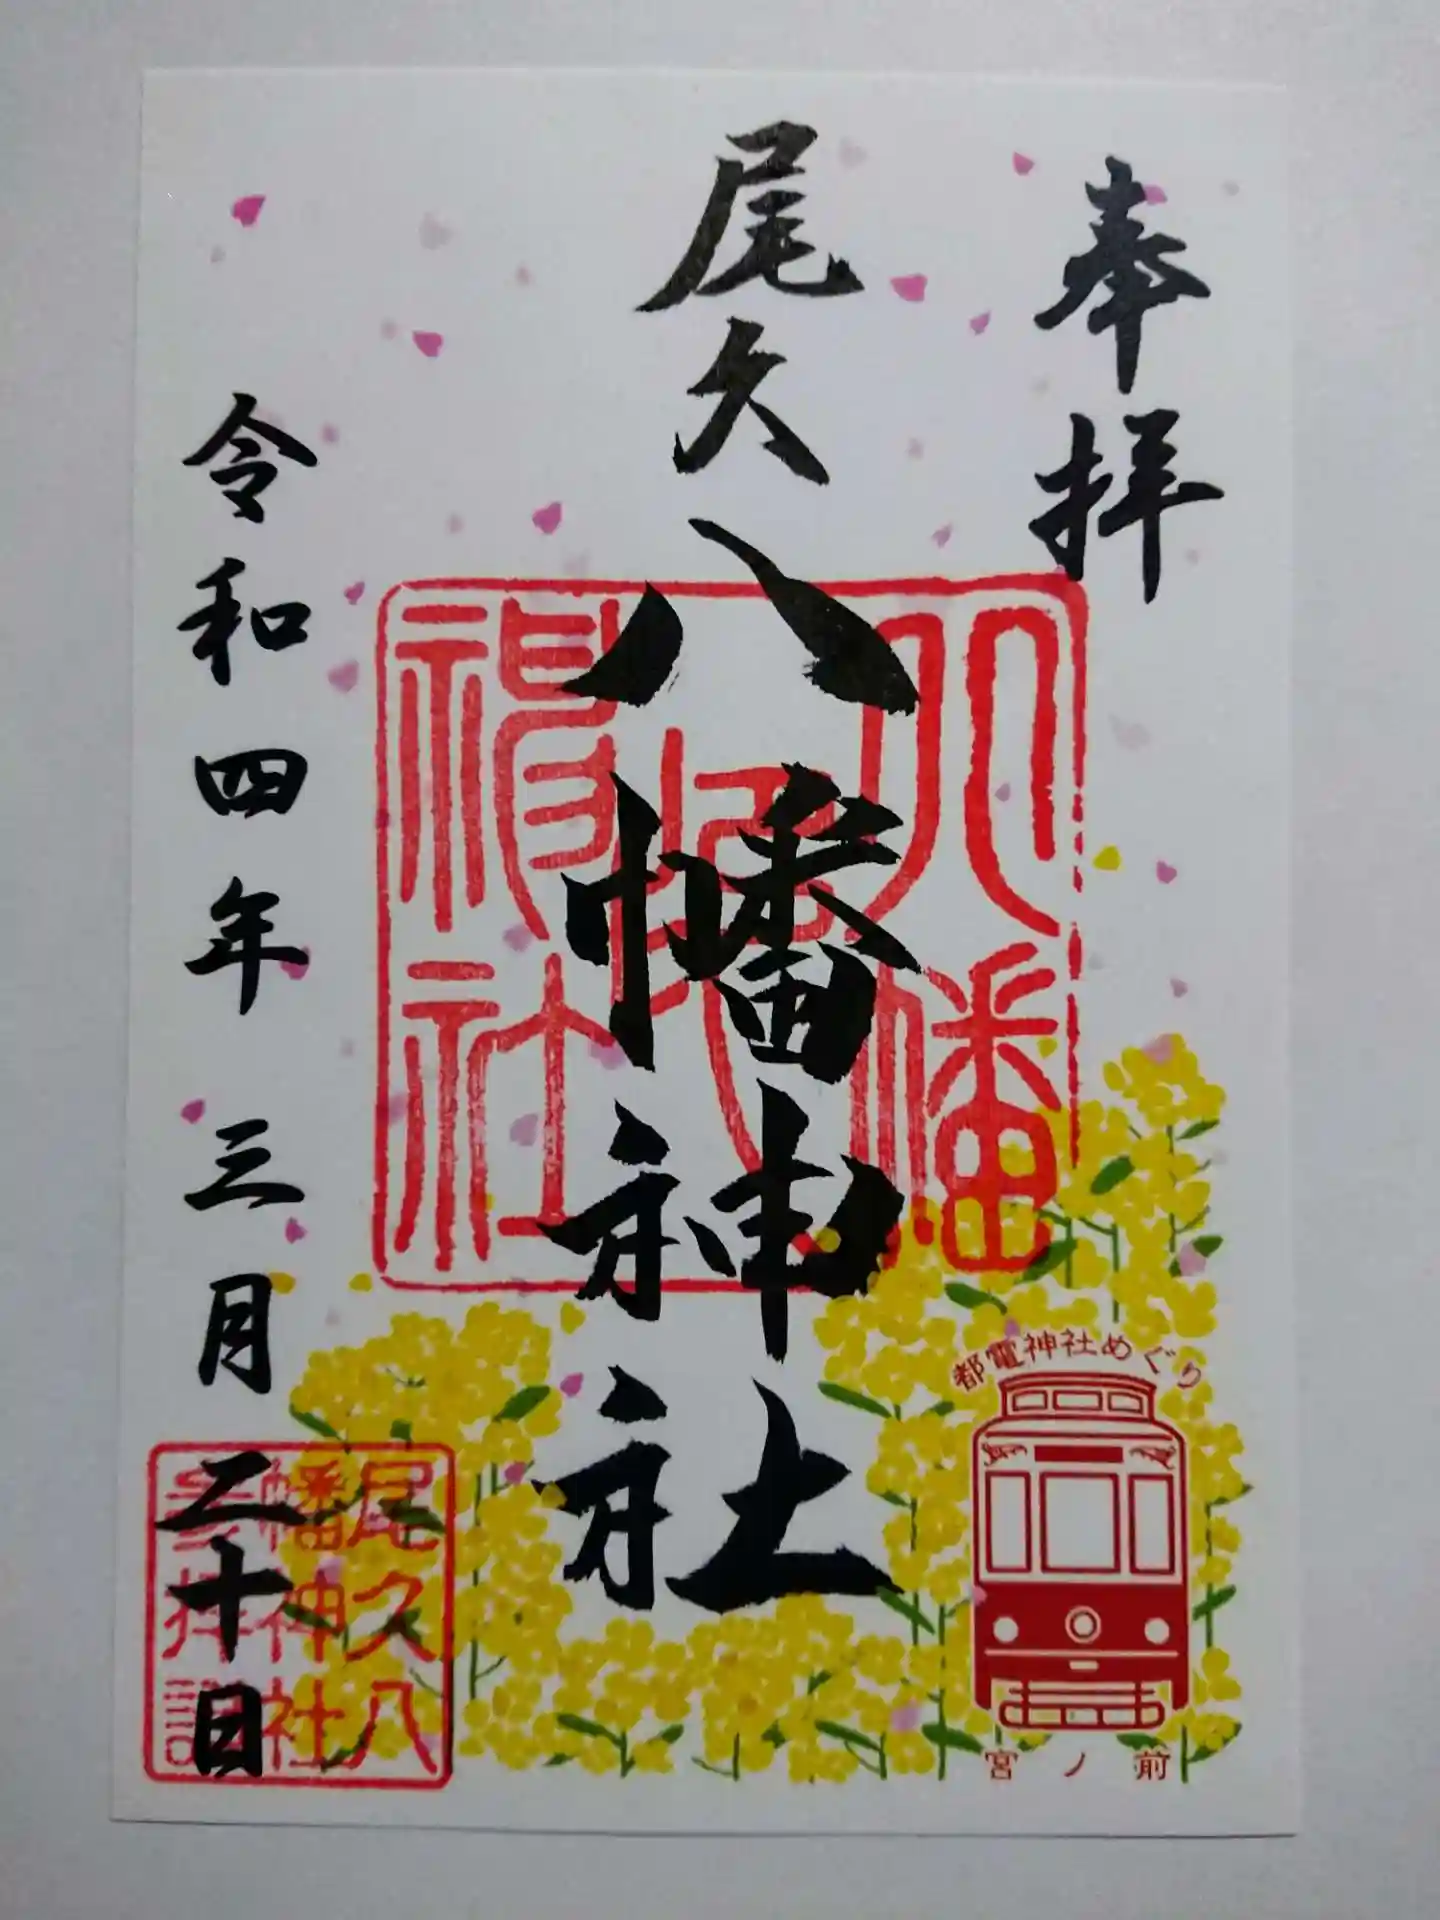 奉拝
尾久八幡神社
令和四年三月二十日
八幡
神社
尾久八
幡神社
参拝證
都電神社めぐり
宮ノ前